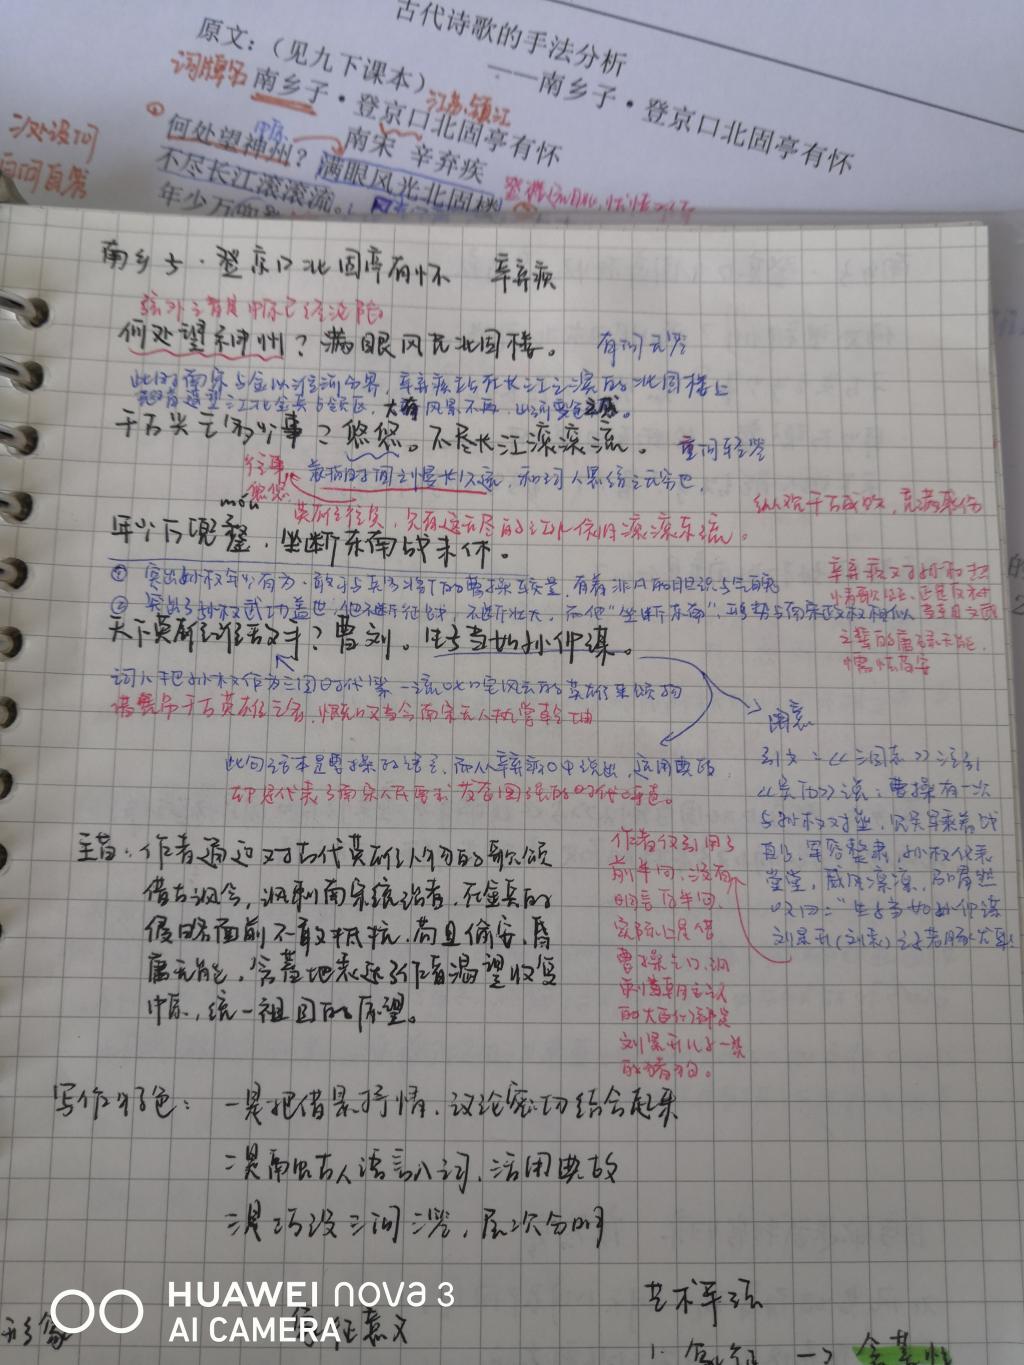 古代诗歌的手法分析
——南乡子·登京口北固亭有怀
原文：（见九下课本）
词牌名
南乡子·登京口北固亭有怀
江苏镇江
南宋 辛弃疾
中原
何处望神州？满眼风光北固楼
三次设问
自问自答
不尽长江滚滚流。
年少万兜
南乡子·登京口北固亭有怀 辛弃疾
弦外之音是中原已经沦陷
何处望神州？满眼风光北固楼。
有问无答
此时南宋与金以淮河分界，辛弃疾站在长江之滨的北固楼上
千古兴亡多少事？悠悠。不尽长江滚滚流。
往事
悠悠
表示时间之漫长久远，和词人思绪之无穷也，
móu
英雄往矣，只有这无尽的江水依旧滚滚东流。
年少万兜鍪，坐断东南战未休。
① 突出孙权年少有为，敢于与
② 突出了孙权武功盖世，他不断征战，不断壮大，而他“坐断东南”，形势与南宋政权相似
天下英雄谁敌手？曹刘。生子当如孙仲谋。
词人把孙权作为三国时代第一流叱咤风云的英雄来颂扬
此句话本是曹操的语言，而从辛弃疾口中说出，运用典故，
却是代表了南宋人民要求发奋图强的时代呼声。
用意
引文：《三国志》注引
《吴历》说：曹操有一次
与孙权对垒，见吴军乘着战
船，军容整肃，孙权仪表
堂堂，威风凛凛，喟然
叹曰：“生子当如孙仲谋
刘景升（刘表）之子若豚犬耳
主旨：作者通过对古代英雄人物的歌颂
借古讽今，讽刺南宋统治者，在金兵的
侵略面前不敢抵抗、苟且偷安、昏
庸无能，含蓄地表达了作者渴望收复
中原，统一祖国的愿望。
作者仅引用了
前半句，没有
明言后半句，
实际上是借
曹操之口，讽
刺当朝主议
的大臣们都是
刘景升儿子一类
的猪狗。
写作特色：一是把借景抒情，议论密切结合起来
二是用古人语言入词，活用典故
三是巧设三问三答，层次分明
艺术手法
象征意义
形象
HUAWEI nova 3
AI CAMERA